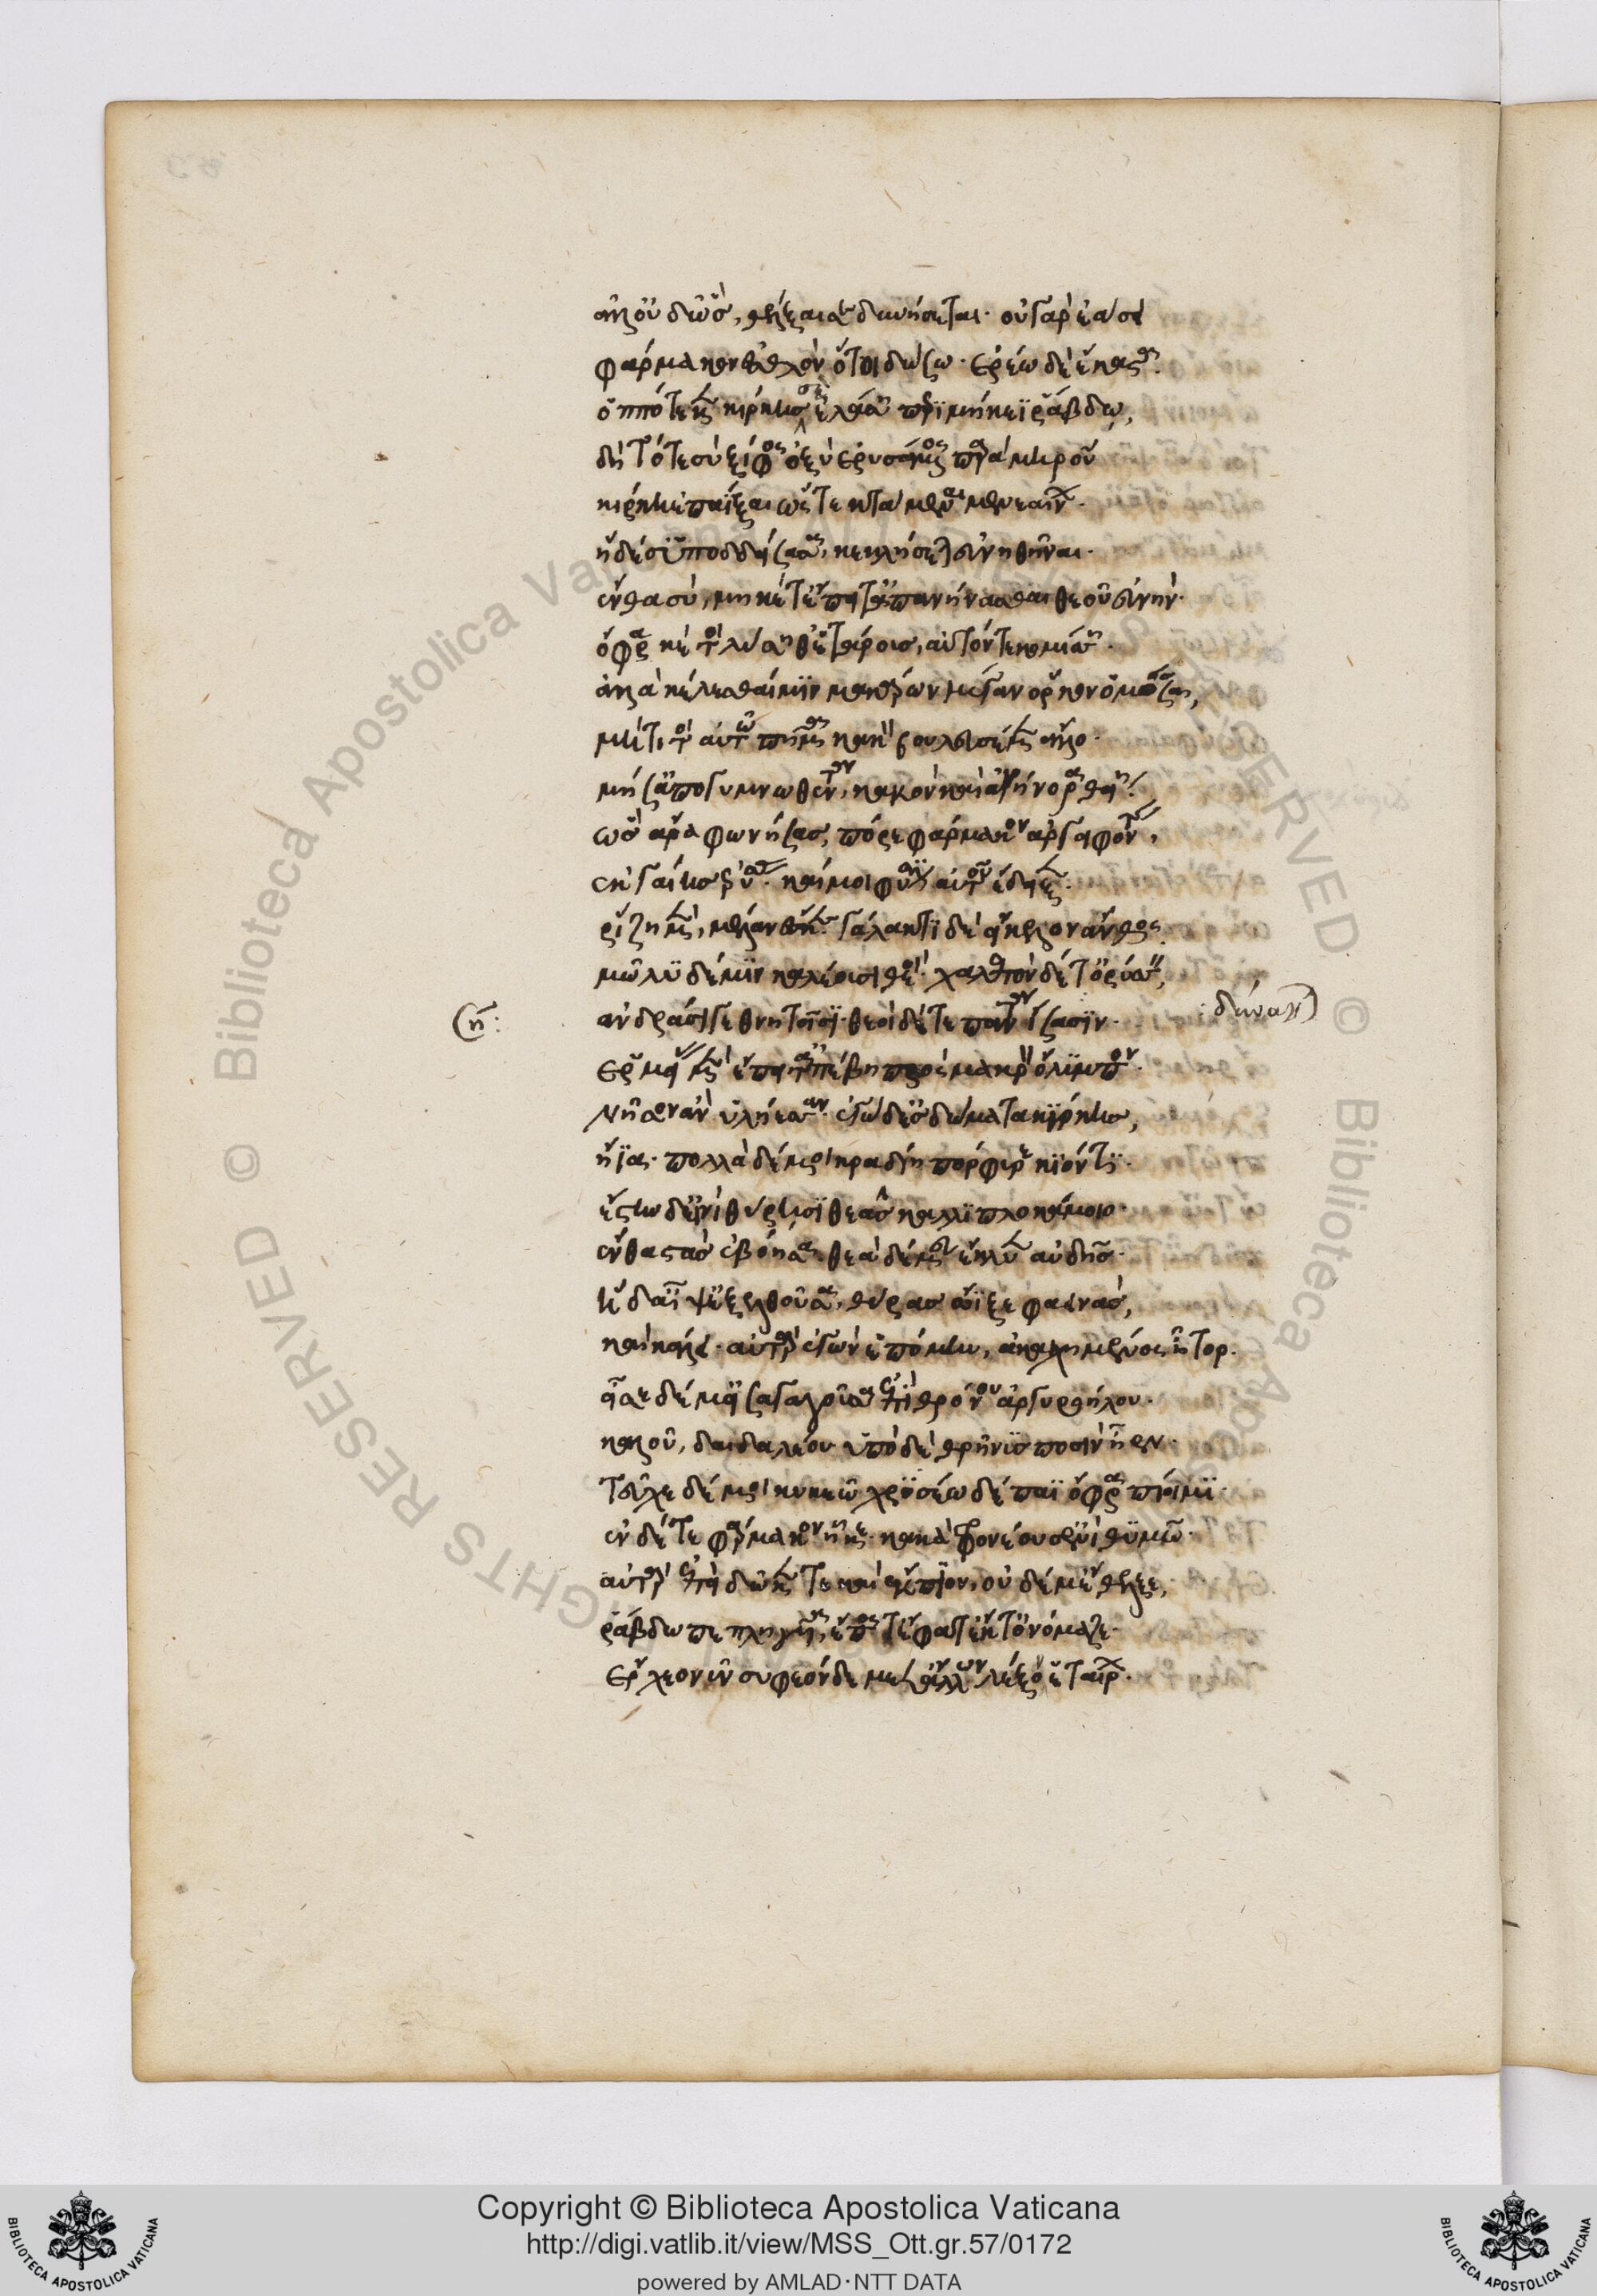 ἀλλ' οὐδ' ὣς θέλξαι σε δυνήσεται· οὐ γὰρ ἐάσει
φάρμακον ἐσθλὸν ὅ τοι δώσω· ἐρέω δὲ ἕκαστα.
ὁππότε κεν κίρκη σ' ἐλάσῃ περιμήκεϊ ῥάβδῳ,
δὴ τότε σὺ ξίφος ὀξὺ ἐρυσάμενος παρὰ μηροῦ
κίρκῃ ἐπαΐξαι ὥς τε κτάμεναι μενεαίνων.
ἡ δέ σ' ὑποδδείσασα, κεκλήσεται εὐνηθῆναι.
ἔνθα σὺ, μηκέτ' ἔπειτ' ἀπανήνασθαι θεοῦ εὐνήν·
ὄφρα κέ τοι λύσῃ θ' ἑτάρους, αὐτόν τε κομίσσῃ.
ἀλλὰ κέλεσθαί μιν μακάρων μέγαν ὅρκον ὀμόσσαι,
μή τί τοι αὐτῷ πῆμα κακὸν βουλευσέμεν ἄλλο.
μή σ' ἀπογυμνωθέντα, κακὸν καὶ ἀνήνορα θείῃ.
ὣς ἄρα φωνήσας, πόρε φάρμακον ἀργειφόντης,
ἐκ γαίης ἐρύσας· καί μοι φύσιν αὐτοῦ ἔδειξεν.
ῥίζῃ μὲν, μέλαν ἔσκεν· γάλακτι δὲ εἴκελον ἄνθος.
μῶλυ δέ μιν καλέουσι θεοί· χαλεπὸν δέ τ' ὀρύσσειν,
(η: ἀνδράσι γε θνητοῖσι· θεοὶ δέ τε πάντα ἴσασιν. : δύνανται)
ἑρμείας μὲν ἔπειτ' ἀπέβη πρὸς μακρὸν ὄλυμπον.
νῆσον ἀν' ὑλήεσσαν· ἐγὼ δ' ἐς δώματα κίρκης,
ἤϊα. πολλὰ δέ μοι κραδίη πόρφυρε κιόντι.
ἔστην δ' εἰνὶ θύρῃσι θεᾶς καλλιπλοκάμοιο.
ἔνθα στὰς ἐβόησα· θεὰ δέ μευ ἔκλυεν αὐδῆς.
ἡ δ' αἶψ' ἐξελθοῦσα, θύρας ὤϊξε φαεινάς,
καὶ κάλει· αὐτὰρ ἐγὼν ἑπόμην, ἀκαχήμενος ἦτορ.
εἷσε δέ μ' εἰσαγαγοῦσα ἐπὶ θρόνου ἀργυροήλου.
καλοῦ, δαιδαλέου· ὑπὸ δὲ θρῆνυς ποσὶν ἦεν.
τεῦχε δέ μοι κυκεῶ χρυσέῳ δέπαϊ ὄφρα πίοιμι.
ἐν δέ τε φάρμακον ἧκε· κακὰ φρονέουσ' ἐνὶ θυμῷ.
αὐτὰρ ἐπεὶ δῶκέν τε καὶ ἔκπιον, οὐδέ μ' ἔθελξε,
ῥάβδῳ πεπληγυῖα, ἔπος τ' ἔφατ' ἔκ τ' ὀνόμαζε.
ἔρχεο νῦν συφεόνδε μετ' ἄλλων λέξο ἑταίρων.
Copyright © Biblioteca Apostolica Vaticana
http://digi.vatlib.it/view/MSS_Ott.gr.57/0172
powered by AMLAD·NTT DATA